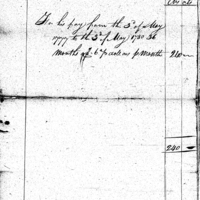 To his pay from the 3d of May
1777 to the 3d of May 1780 36
months @ 6⅔ dols p month 240
240